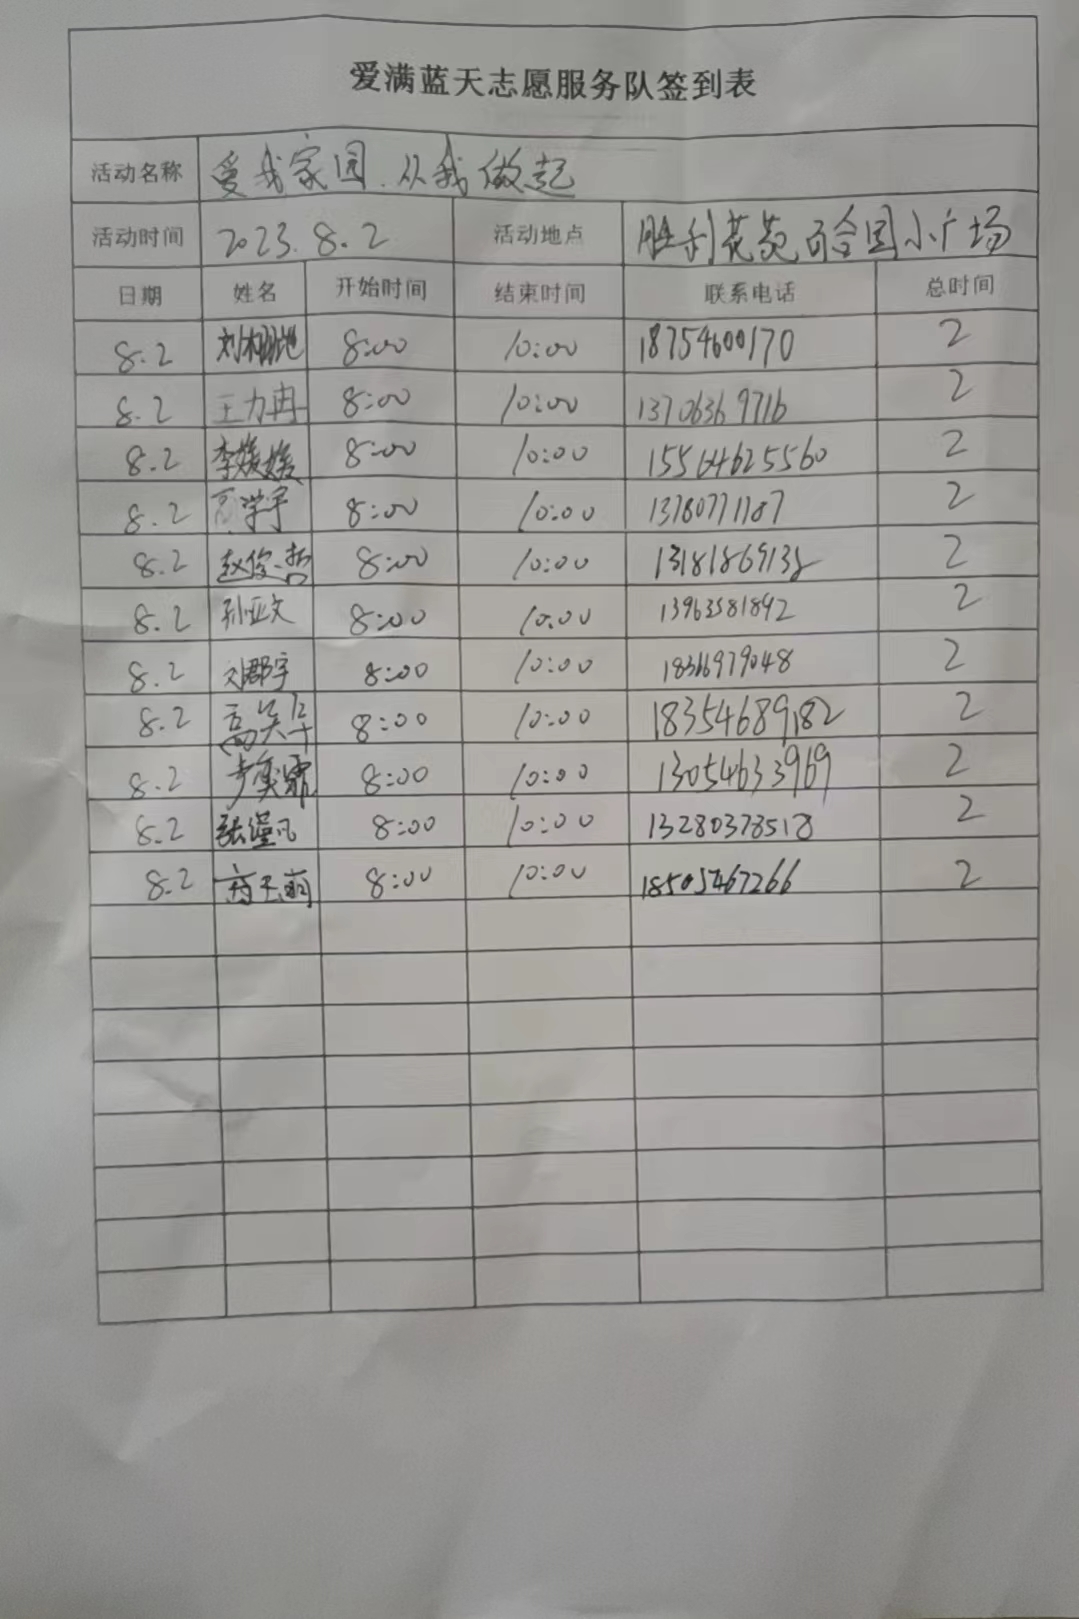 爱满蓝天志愿服务队签到表
活动名称 爱我家园.从我做起
活动时间 2023.8.2 活动地点 胜利花苑百合园小广场
日期 姓名 开始时间 结束时间 联系电话 总时间
8.2 8:00 10:00 18754600170 2
8.2 王力冉 8:00 10:00 13706369716 2
8.2 李媛媛 8:00 10:00 15564625560 2
8.2 学宇 8:00 10:00 13780771187 2
8.2 赵俊哲 8:00 10:00 2
8.2 孙亚文 8:00 10:00 13963581892 2
8.2 刘郡宇 8:00 10:00 18366979048 2
8.2 8:00 10:00 18354689182 2
8.2 步奕霏 8:00 10:00 13054633969 2
8.2 8:00 10:00 13280378518 2
8.2 8:00 10:00 18505467266 2